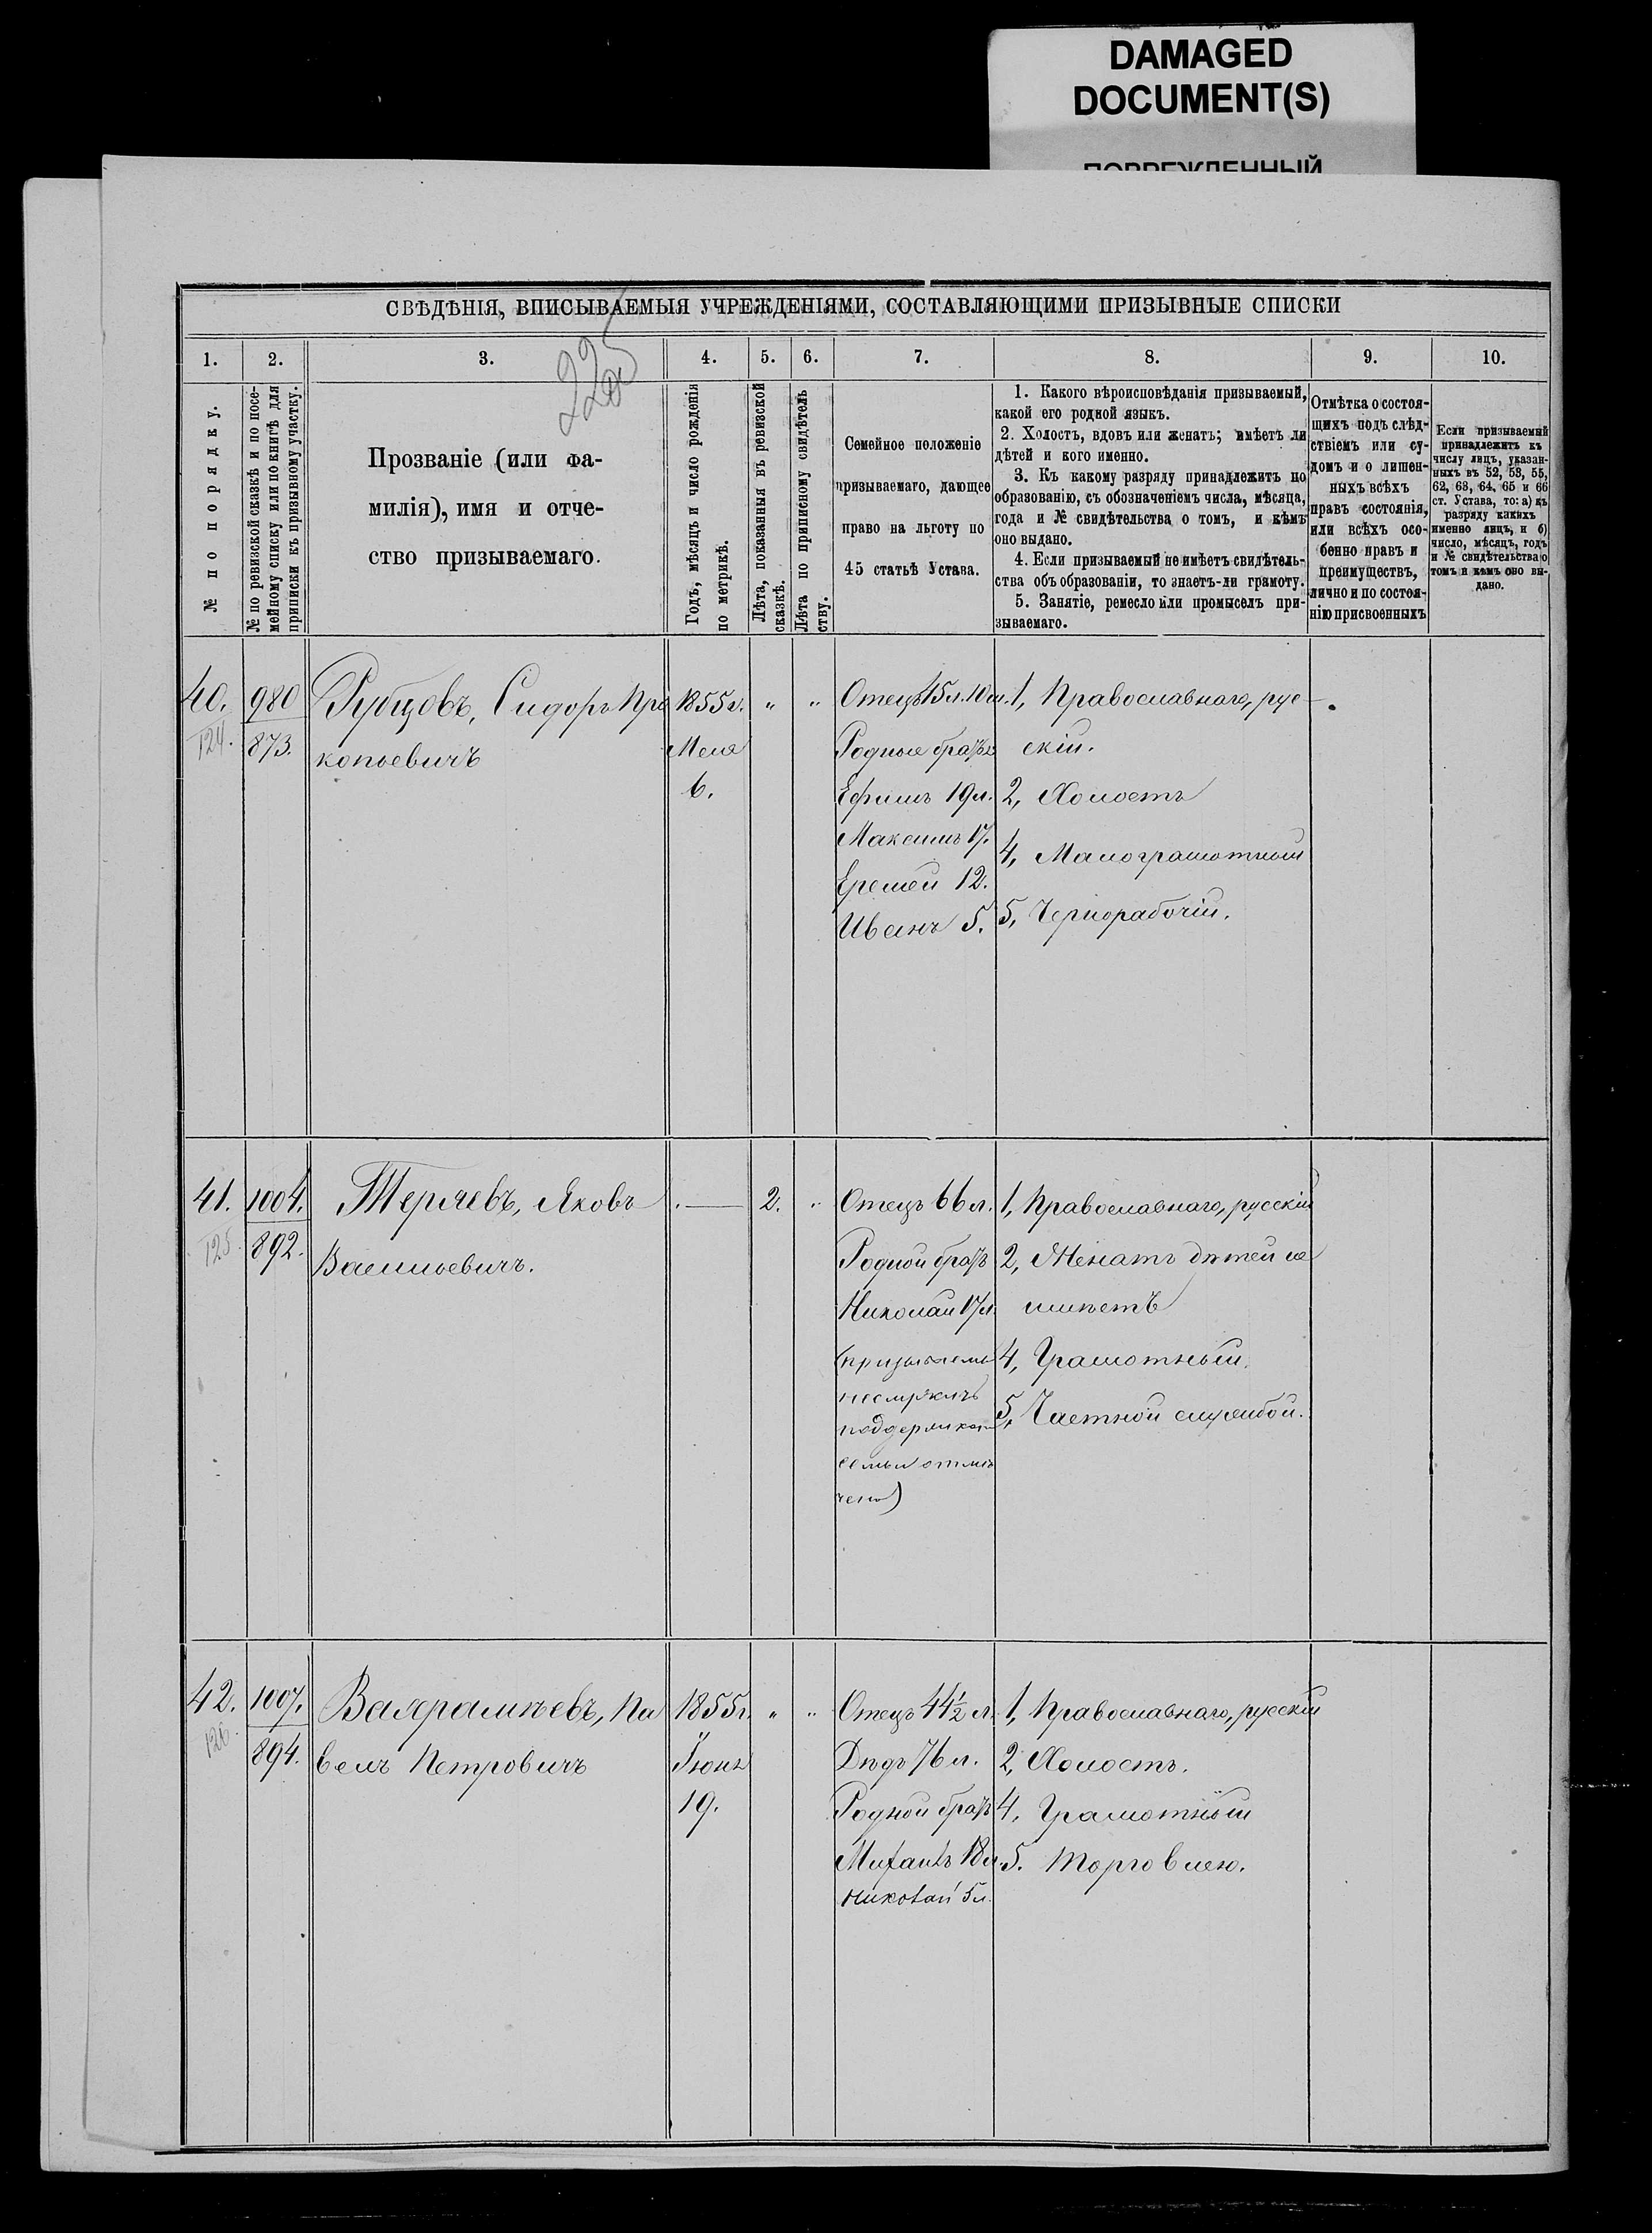 DAMAGED
DOCUMENT(S)
ПОВРЕЖДЕННЫЙ
СВѢДѢНІЯ, ВПИСЫВАЕМЫЯ УЧРЕЖДЕНІЯМИ, СОСТАВЛЯЮЩИМИ ПРИЗЫВНЫЕ СПИСКИ
225
1.
№ по порядку.
2.
№ по ревизской сказкѣ и по посе-
мейному списку или по книгѣ для
приписки къ призывному участку.
3.
Прозваніе (или фа-
милія), имя и отче-
ство призываемаго.
4.
Годъ, мѣсяцъ и число рожденія
по метрикѣ.
5.
Лѣта, показанныя въ ревизской
сказкѣ.
6.
Лѣта по приписному свидѣтель
ству.
7.
Семейное положеніе
призываемаго, дающее
право на льготу по
45 статьѣ Устава.
8.
1. Какого вѣроисповѣданія призываемый,
какой его родной языкъ.
2. Холостъ, вдовъ или женатъ; имѣетъ ли
дѣтей и кого именно.
3. Къ какому разряду принадлежитъ по
образованію, съ обозначеніемъ числа, мѣсяца,
года и № свидѣтельства о томъ, и кѣмъ
оно выдано.
4. Если призываемый не имѣетъ свидѣтель-
ства объ образованіи, то знаетъ-ли грамоту.
5. Занятіе, ремесло или промыселъ при-
зываемаго.
9.
Отмѣтка о состоя-
щихъ подъ слѣд-
ствіемъ или су-
домъ и о лишен-
ныхъ всѣхъ
правъ состоянія,
или всѣхъ осо-
бенно правъ и
преимуществъ,
лично и по состоя-
нію присвоенныхъ
10.
Если призываемый
принадлежитъ къ
числу лицъ, указан-
ныхъ въ 52, 53, 55,
62, 63, 64, 65 и 66
ст. Устава, то: а) къ
разряду какихъ
именно лицъ, и б)
число, мѣсяцъ, годъ
и № свидѣтельства о
томъ и кемъ оно вы-
дано.
40.
124.
980
873.
Рубцовъ, Сидоръ Про
копьевичъ
1855г.
Мая
6.
" "
Отецъ 45л. 10м.
Родные братья
Ефимъ 19л.
Максимъ 17.
Еремѣй 12.
Иванъ 5.
1, Православнаго, рус-
скій.
2, Холостъ
4, Малограмотный
5, Чернорабочій.
41.
125.
1004.
892.
Теряевъ, Яковъ
Васильевичъ.
2. "
Отецъ 66л.
Родной братъ
Николай 17л.
1, Православнаго, русскій
2, Женатъ дѣтей не
имѣетъ
4, Грамотный.
5, Частной службой.
42.
126.
1007.
894.
Варламъевъ, Па
велъ Петровичъ
1855г.
Іюня
19.
" "
Отецъ 44½ л.
Дѣдъ 76л.
Родной братъ
Михаилъ 18л.
Николай 5л.
1, Православнаго, русскій
2, Холостъ.
4, Грамотный
5. Торговлею.